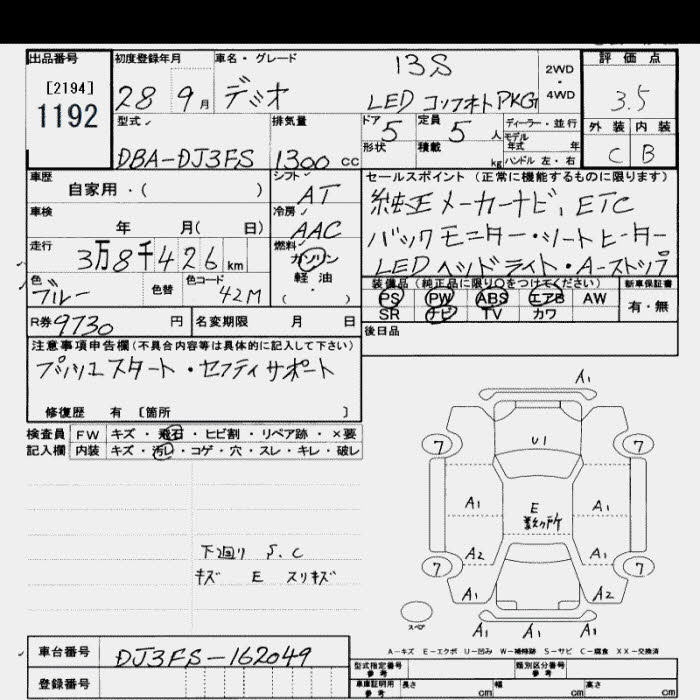 出品番号 初度登録年月 車名・グレード 13S 2WD・4WD 評価点
[2194]
1192 28 9月 デミオ LED コンフォト PKG 3.5
型式 排気量 ドア 5 定員 5人 ディーラー・並行 外装 内装
DBA-DJ3FS 1300 cc 形状 積載 kg モデル年式 年 ハンドル 左・右 C B
車歴 シフト セールスポイント (正常に機能するものに限ります)
自家用・( ) AT 純正メーカーナビ、ETC
車検 冷房 バックモニター・シートヒーター
年 月( 日) AAC LEDヘッドライト・A-ストップ
走行 燃料
3万8千426 km ガソリン
色 色替 色コード 軽・油
ブルー 42M (・)
装備品 (純正品に限り○をつけてください) 新車保証書
PS PW ABS エアB AW 有・無
SR ナビ TV カワ
R券 9730 円 名変期限 月 日 後日品
注意事項申告欄(不具合内容等は具体的に記入して下さい)
プッシュスタート・セフティサポート
修復歴 有 [箇所 ]
検査員 FW キズ・飛石・ヒビ割・リペア跡・×要
記入欄 内装 キズ・汚レ・コゲ・穴・スレ・キレ・破レ
A1
7 U1 7
A1 E A1
数ヶ所
A2 A1
7 7
A1 A2
A1 A1 A1
スペア
下廻り S、C
キズ E スリキズ
A-キズ E-エクボ U-凹み W-補修跡 S-サビ C-腐食 XX-交換済
車台番号 DJ3FS-162049
型式指定番号 参考 類別区分番号 参考
登録番号 車庫証明用 参考 長さ cm 幅 cm 高さ cm